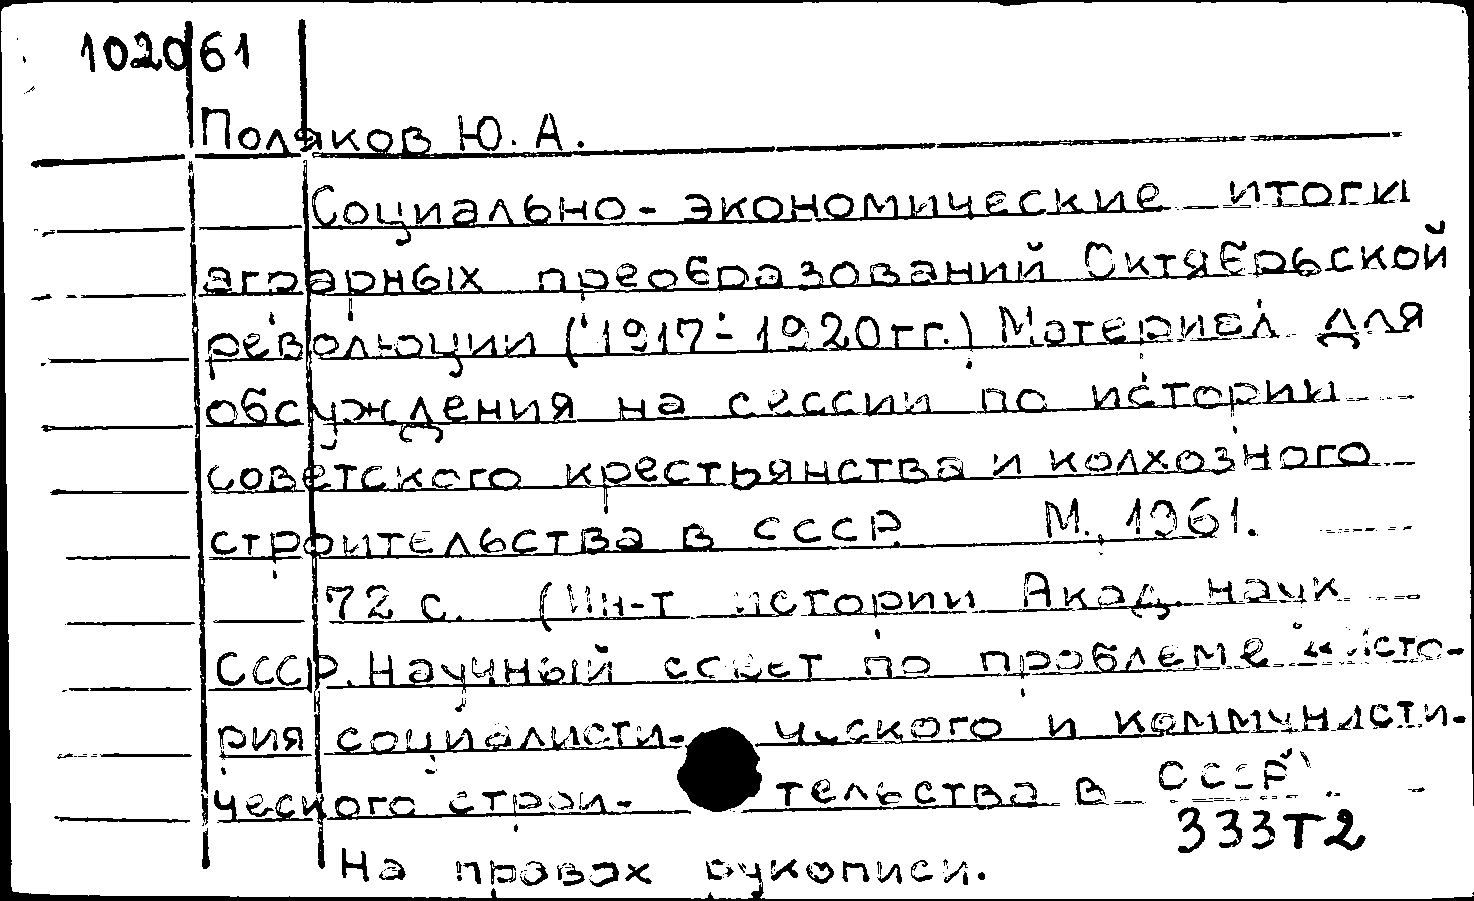 102061
Поляков Ю. А.
Социально-экономические итоги
аграрных преобразований Октябрьской
революции (1917-1920гг.) Материал для
обсуждения на сессии по истории
советского крестьянства и колхозного
строительства в СССР. М., 1961.
72 с. (Ин-т истории Акад. наук
СССР. Научный совет по проблеме "Исто-
рия социалисти- ческого и коммунисти-
ческого строи- тельства в СССР"
333Т2
На правах рукописи.